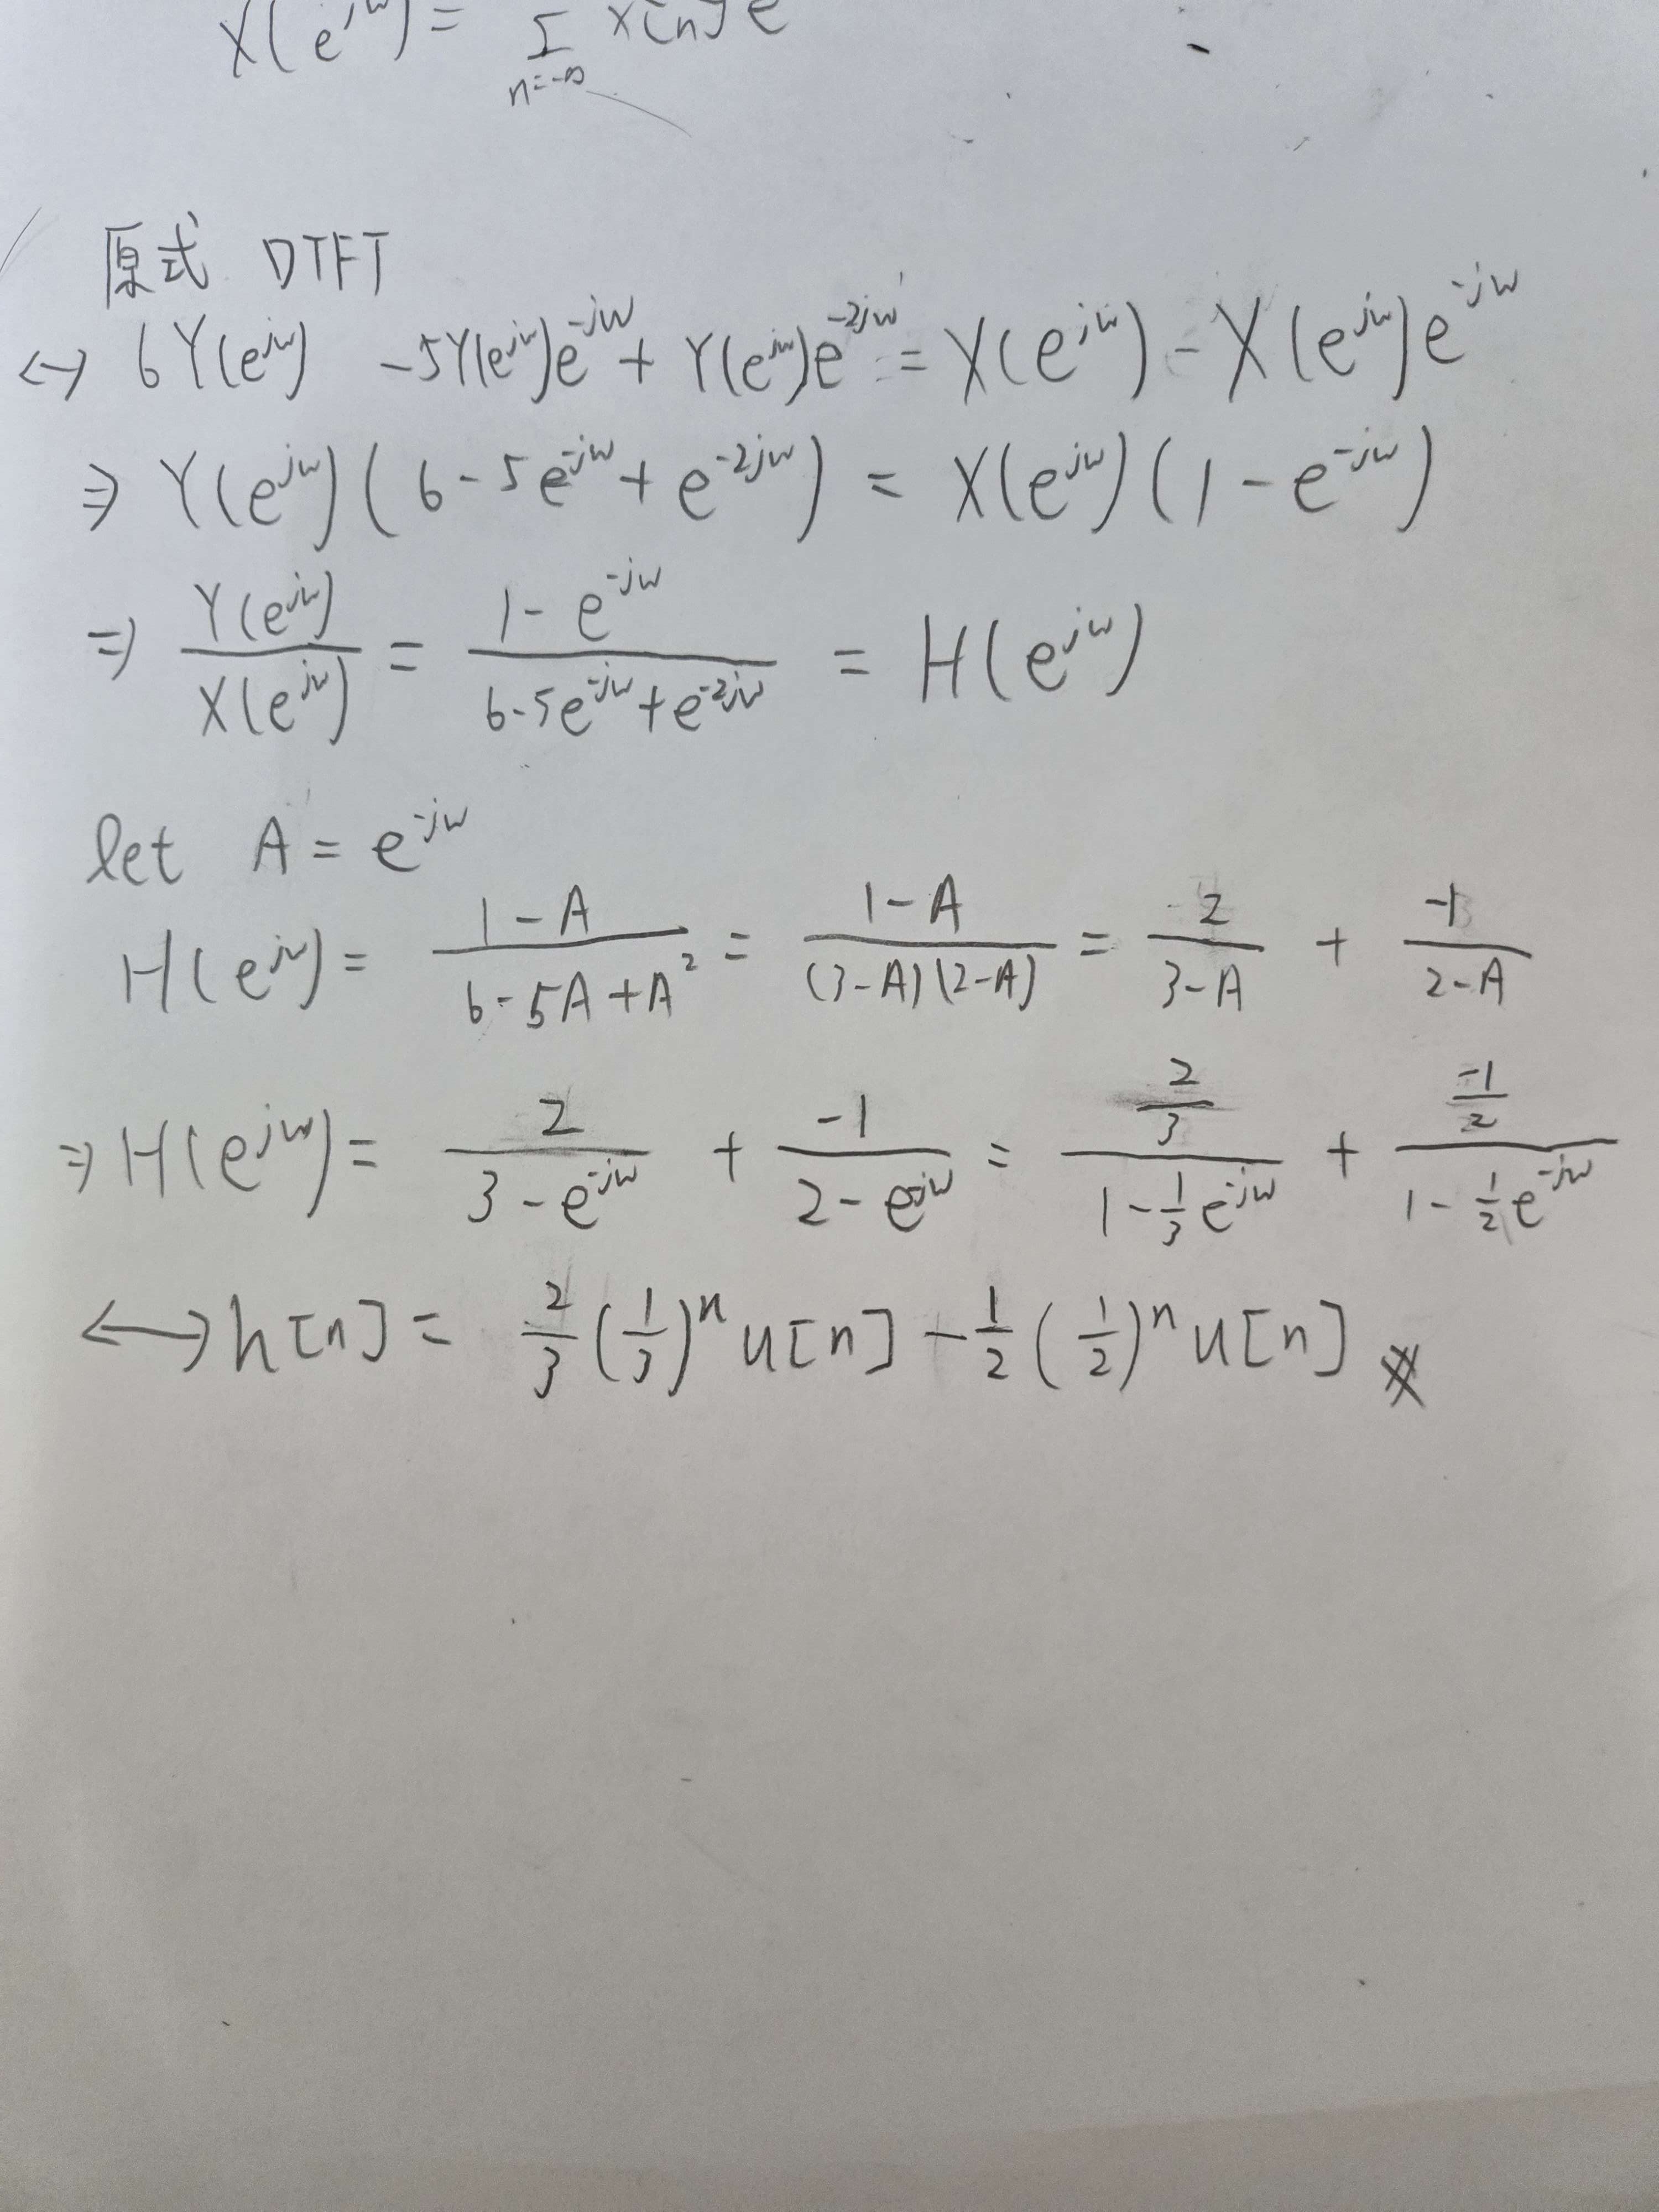 X(e^{jω}) = Σ_{n=-∞} x[n] e
原式 DTFT
↔ 6Y(e^{jω}) -5Y(e^{jω})e^{-jω} + Y(e^{jω})e^{-2jω} = X(e^{jω}) - X(e^{jω})e^{-jω}
⇒ Y(e^{jω})(6-5e^{-jω}+e^{-2jω}) = X(e^{jω})(1-e^{-jω})
⇒ \frac{Y(e^{jω})}{X(e^{jω})} = \frac{1-e^{-jω}}{6-5e^{-jω}+e^{-2jω}} = H(e^{jω})
let A = e^{-jω}
H(e^{jω}) = \frac{1-A}{6-5A+A^2} = \frac{1-A}{(3-A)(2-A)} = \frac{2}{3-A} + \frac{-1}{2-A}
⇒ H(e^{jω}) = \frac{2}{3-e^{-jω}} + \frac{-1}{2-e^{-jω}} = \frac{\frac{2}{3}}{1-\frac{1}{3}e^{-jω}} + \frac{\frac{-1}{2}}{1-\frac{1}{2}e^{-jω}}
↔ h[n] = \frac{2}{3}(\frac{1}{3})^n u[n] - \frac{1}{2}(\frac{1}{2})^n u[n]